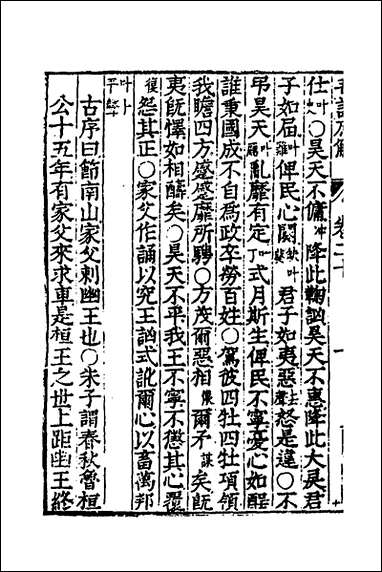 毛詩原解 卷二十 一
仕叶史○昊天不傭冲降此鞠訩昊天不惠降此大戾君
子如屆叶雞俾民心闋缺叶葵君子如夷惡去聲怒是違○不
弔昊天叶亂靡有定叶丁式月斯生俾民不寧憂心如酲
誰秉國成不自爲政卒勞百姓○駕彼四牡四牡項領
我瞻四方蹙蹙靡所騁○方茂爾惡相爾矛謀矣旣
夷旣懌如相醻矣○昊天不平我王不寧不懲其心覆
復怨其正○家父作誦以究王訩式訛爾心以畜萬邦
叶卜平綘
古序曰節南山家父刺幽王也○朱子謂春秋魯桓
公十五年有家父來求車是桓王之世上距幽王終